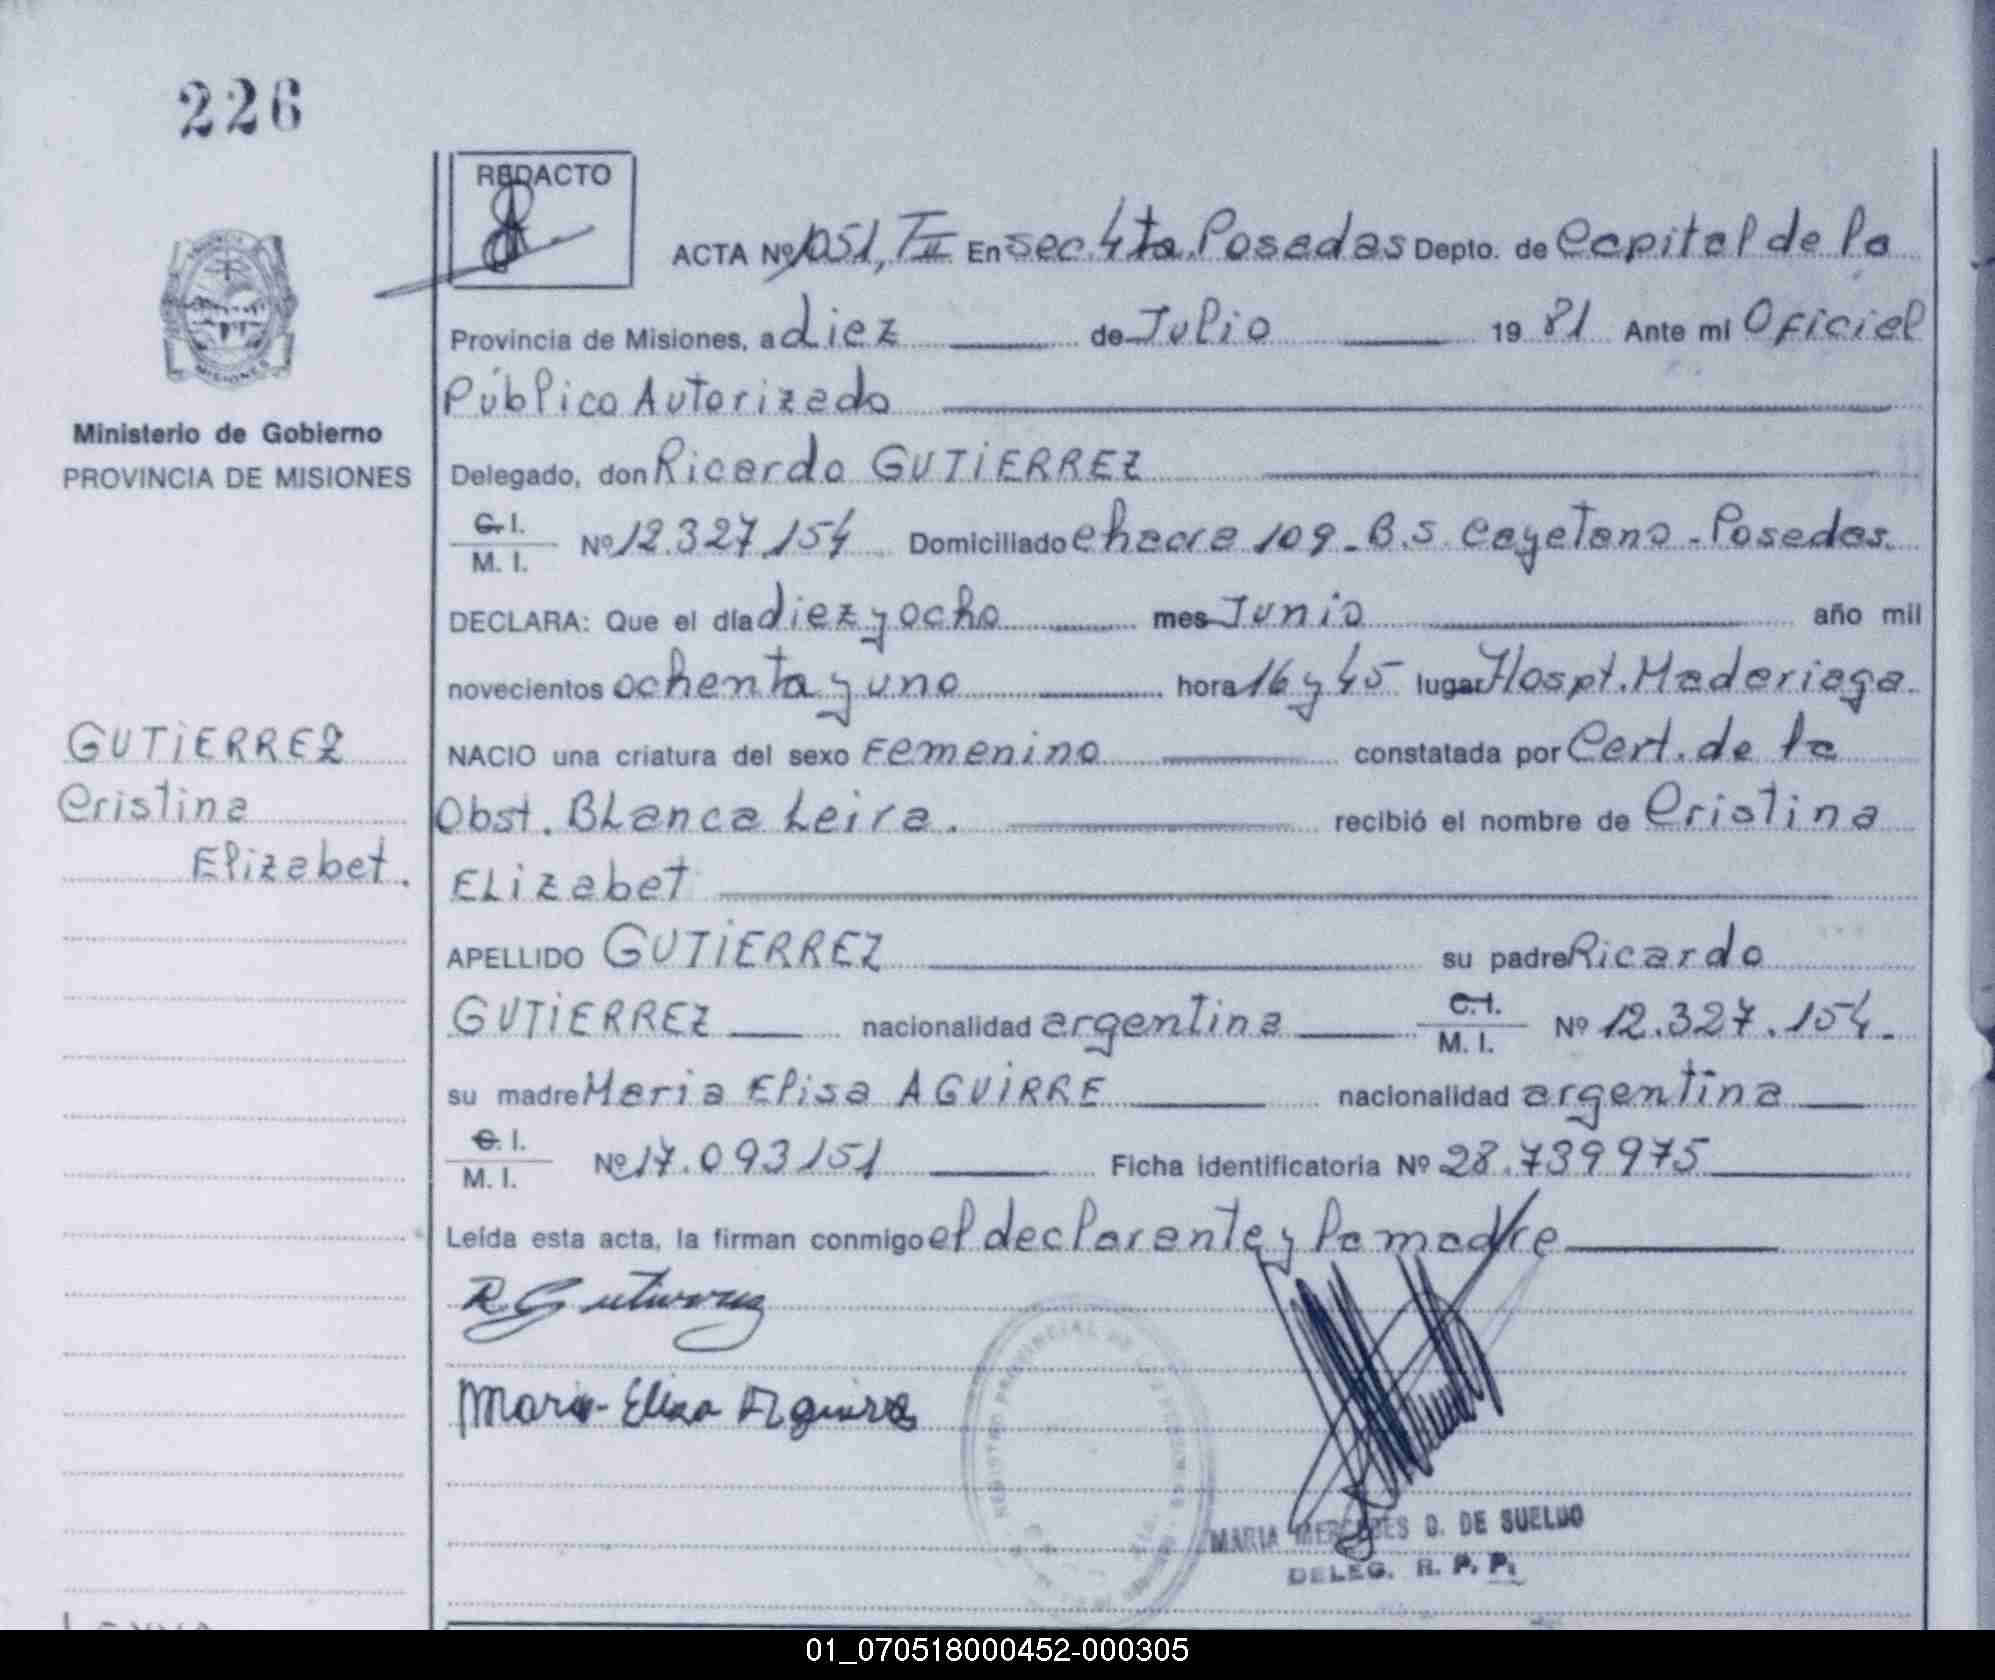 226
REDACTO
ACTA Nº 1051, T II En sec. 4ta. Posadas Depto. de Capital de la
Provincia de Misiones, a diez de Julio 1981 Ante mi Oficial
Público Autorizado
Ministerio de Gobierno
PROVINCIA DE MISIONES
Delegado, don Ricardo GUTIERREZ
C. I.
M. I. Nº 12.327.154 Domiciliado chacra 109 - B. S. Cayetano - Posadas.
DECLARA: Que el día diez y ocho mes Junio año mil
novecientos ochenta y uno hora 16 y 45 lugar Hospt. Madariaga.
GUTIERREZ
Cristina
Elizabet.
NACIO una criatura del sexo Femenino constatada por Cert. de la
Obst. Blanca Leira. recibió el nombre de Cristina
ELizabet
APELLIDO GUTIERREZ su padre Ricardo
GUTIERREZ nacionalidad argentina C.I. M. I. Nº 12.327.154.
su madre Maria Elisa AGUIRRE nacionalidad argentina
C. I.
M. I. Nº 17.093151 Ficha identificatoria Nº 28.739975
Leída esta acta, la firman conmigo el declarante y la madre
R Gutierrez
Maria Elisa Aguirre
REGISTRO PROVINCIAL DE LAS PERSONAS
MARIA MERCEDES D. DE SUELDO
DELEG. R. P. P.
01_070518000452-000305